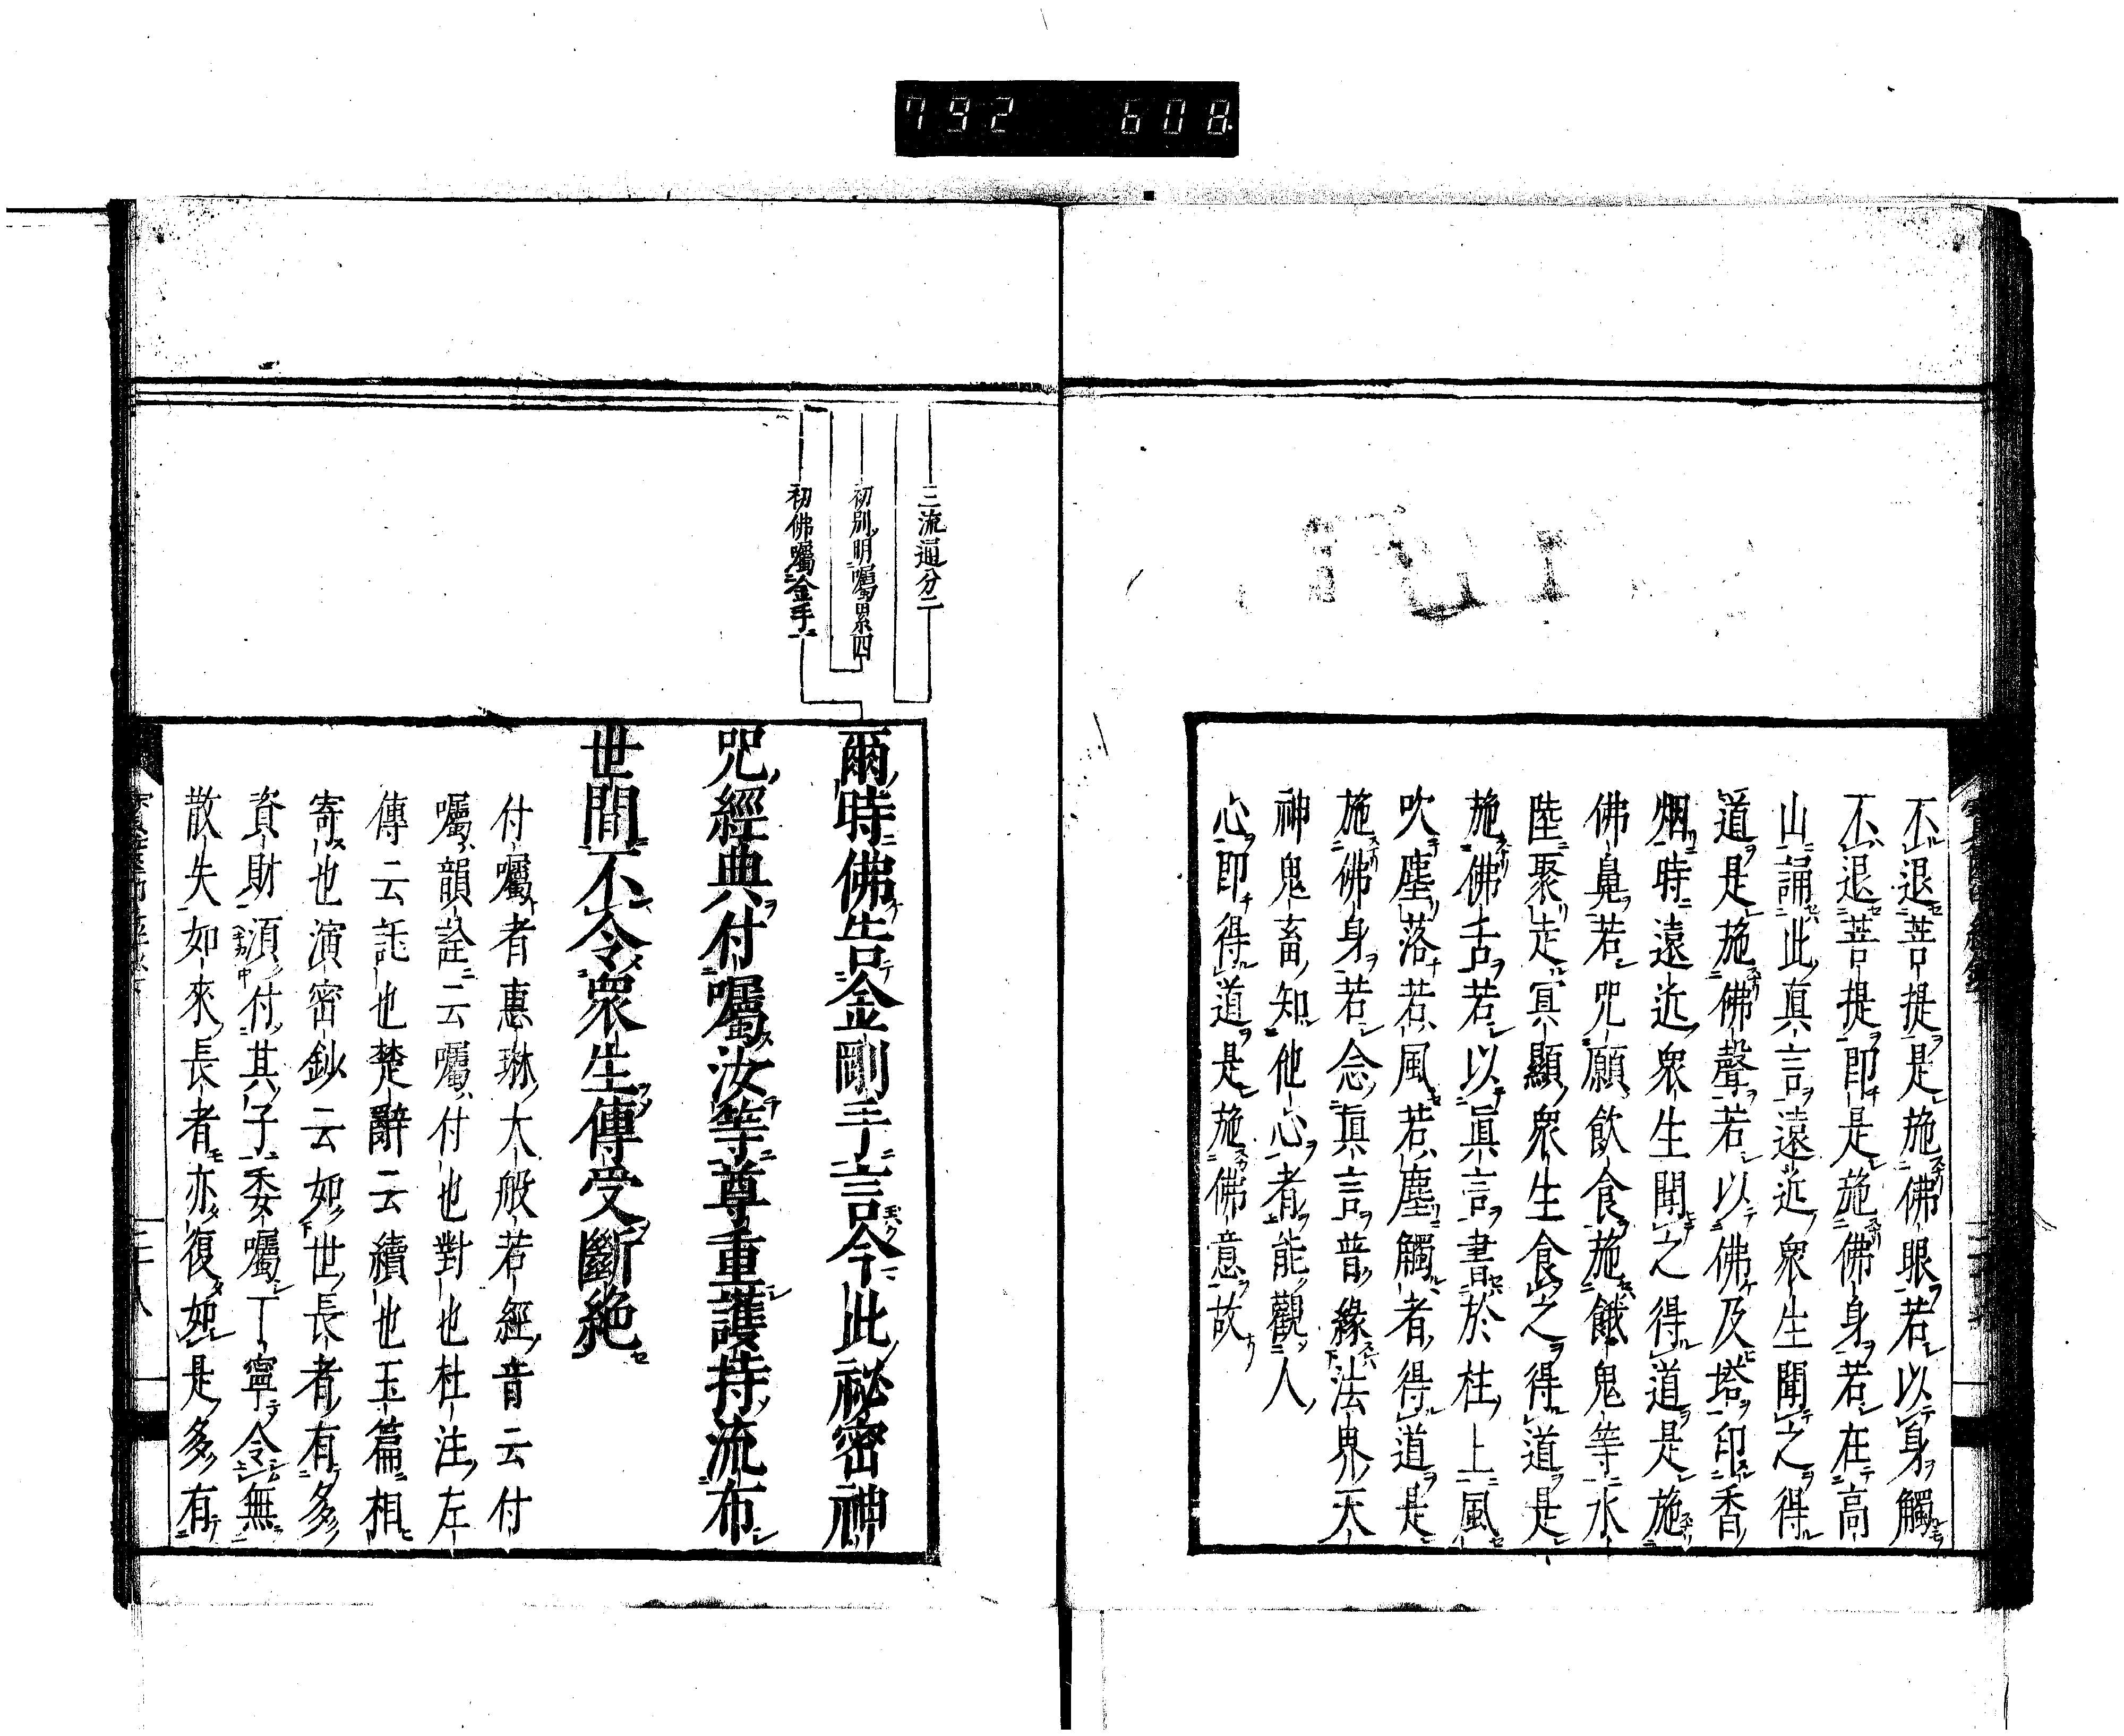 792 608
不退菩提是施佛眼若以身觸
不退菩提即是施佛身若在高
山誦此真言遠近衆生聞之得
道是施佛聲若以佛及塔印香
烟時遠近衆生聞之得道是施
佛鼻若咒願飲食施餓鬼等水
陸聚走冥顯衆生食之得道是
施佛舌若以眞言書於柱上風
吹塵落若風若塵觸者得道是
施佛身若念眞言普緣法界天
神鬼畜知他心者能觀人
心即得道是施佛意故
三流通分二
初別明囑累四
初佛囑金手
爾時佛告金剛手言今此祕密神
咒經典付囑汝等尊重護持流布
世間不令衆生傳受斷絶
付囑者惠琳大般若經音云付
囑韻詮云囑付也對也杜注左
傳云託也楚辭云續也玉篇相
寄也演密鈔云如世長者有多
資財須付其子委囑丁寧令無
散失如來長者亦復如是多有